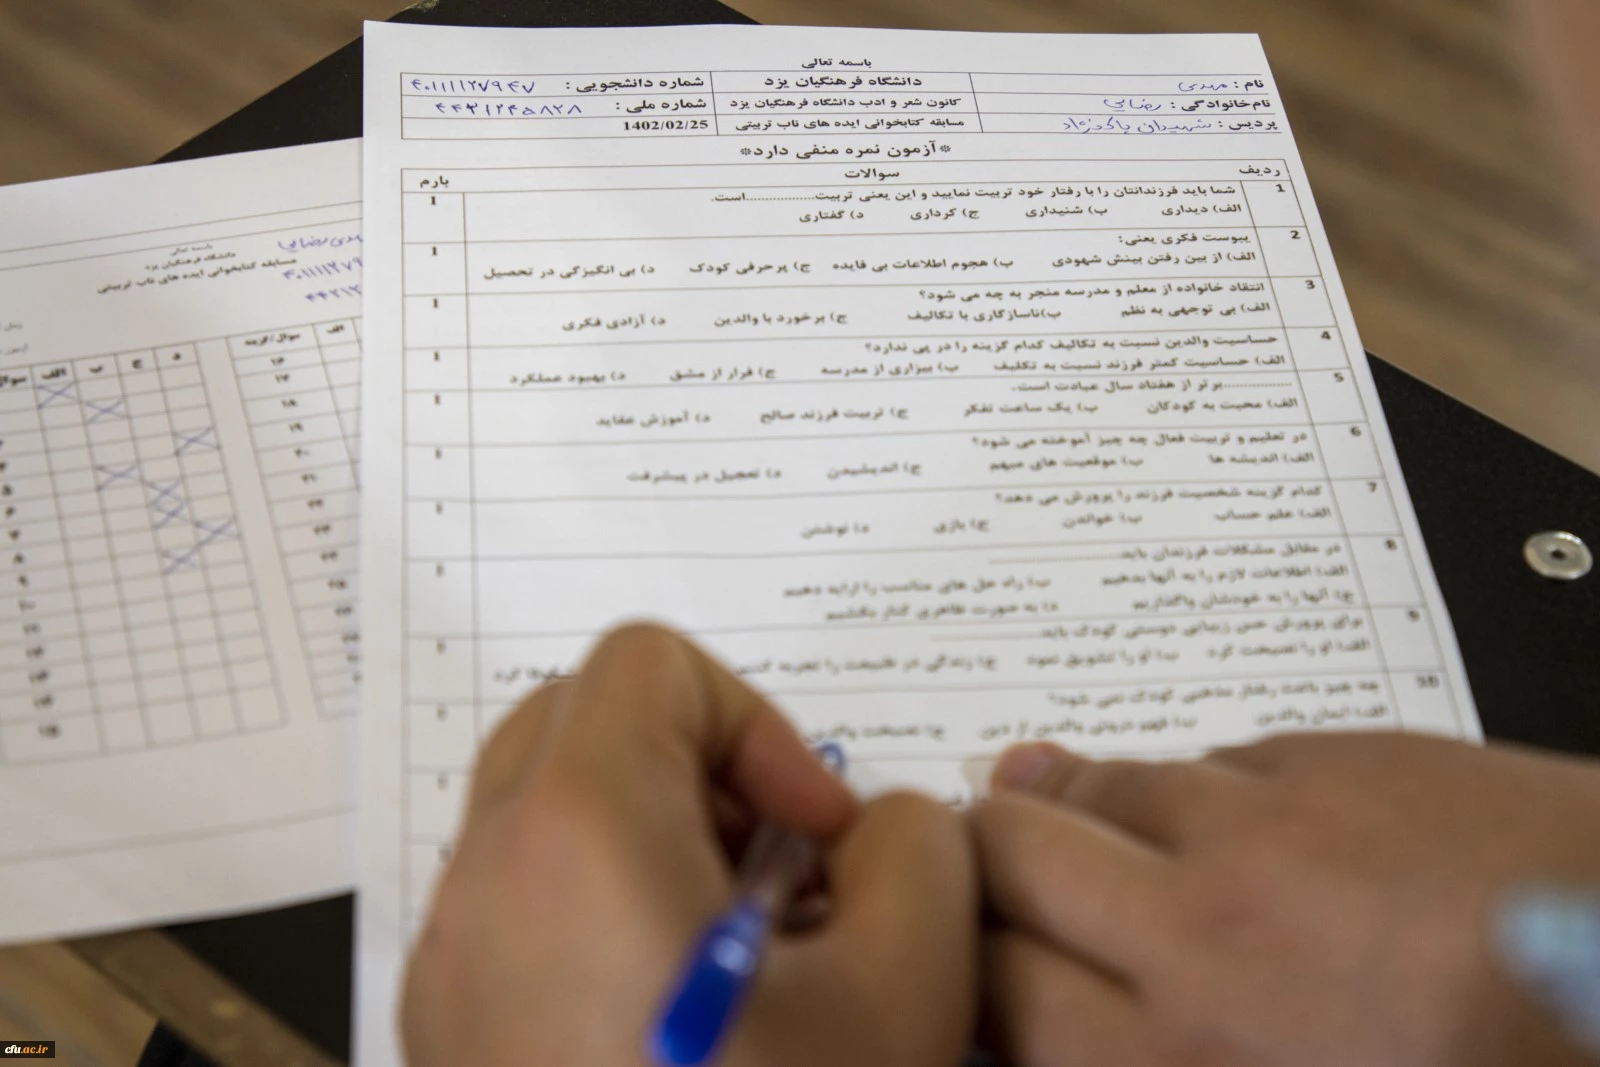 باسمه تعالی
نام : مهدی
دانشگاه فرهنگیان یزد
شماره دانشجویی : ۴۰۱۱۱۱۲۷۹۴۷
نام‌خانوادگی : رضایی
کانون شعر و ادب دانشگاه فرهنگیان یزد
شماره ملی : ۴۴۳۱۲۴۵۸۲۸
پردیس : شهیدان پاکنژاد
مسابقه کتابخوانی ایده های ناب تربیتی
1402/02/25
*آزمون نمره منفی دارد*
ردیف سوالات بارم
1 شما باید فرزندانتان را با رفتار خود تربیت نمایید و این یعنی تربیت.................است. 1
الف) دیداری ب) شنیداری ج) کرداری د) گفتاری
2 یبوست فکری یعنی: 1
الف) از بین رفتن بینش شهودی ب) هجوم اطلاعات بی فایده ج) پرحرفی کودک د) بی انگیزگی در تحصیل
3 انتقاد خانواده از معلم و مدرسه منجر به چه می شود؟ 1
الف) بی توجهی به نظم ب)ناسازگاری با تکالیف ج) برخورد با والدین د) آزادی فکری
4 حساسیت والدین نسبت به تکالیف کدام گزینه را در پی ندارد؟ 1
الف) حساسیت کمتر فرزند نسبت به تکلیف ب) بیزاری از مدرسه ج) فرار از مشق د) بهبود عملکرد
5 .................برتر از هفتاد سال عبادت است. 1
الف) محبت به کودکان ب) یک ساعت تفکر ج) تربیت فرزند صالح د) آموزش عقاید
6 در تعلیم و تربیت فعال چه چیز آموخته می شود؟ 1
الف) اندیشه ها ب) موقعیت های مبهم ج) اندیشیدن د) تعجیل در پیشرفت
7 کدام گزینه شخصیت فرزند را پرورش می دهد؟ 1
الف) علم حساب ب) خواندن ج) بازی د) نوشتن
8 در مقابل مشکلات فرزندان باید................. 1
الف) اطلاعات لازم را به آنها بدهیم ب) راه حل های مناسب را ارایه دهیم
ج) آنها را به خودشان واگذاریم د) به صورت ظاهری کنار بکشیم
9 برای پرورش حس زیبایی دوستی کودک باید................. 1
الف) او را نصیحت کرد ب) او را تشویق نمود ج) زندگی در طبیعت را تجربه
10 چه چیز باعث رفتار مذهبی کودک نمی شود؟
الف) ایمان والدین ب) فهم درونی والدین از دین ج) نصیحت والدین
باسمه تعالی
دانشگاه فرهنگیان یزد
مسابقه کتابخوانی ایده های ناب تربیتی
رضایی
سوال/گزینه الف
الف ب ج د
cfu.ac.ir